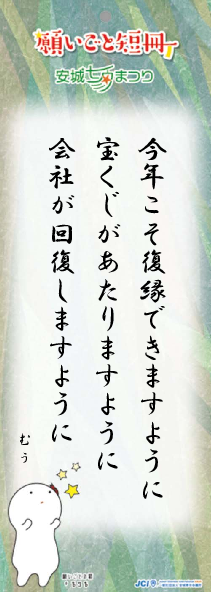 願いごと短冊
安城七夕まつり
今年こそ復縁できますように
宝くじがあたりますように
会社が回復しますように
むぅ
JCI